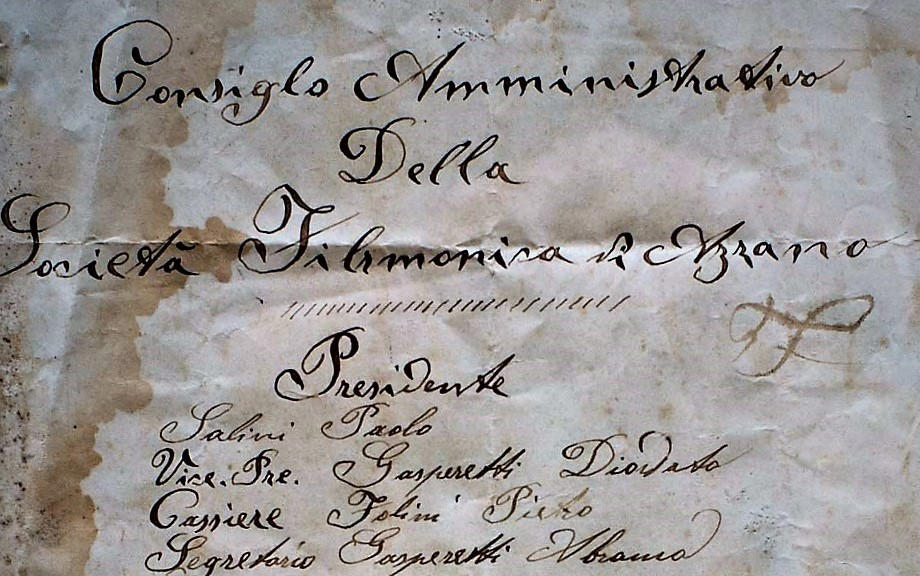 Consiglo Amministrativo
Della
Società Filrmonica di Azzano
Presidente
Salini Paolo
Vice. Pre. Gasperetti Diodato
Cassiere Folini Pietro
Segretario Gasperetti Abramo